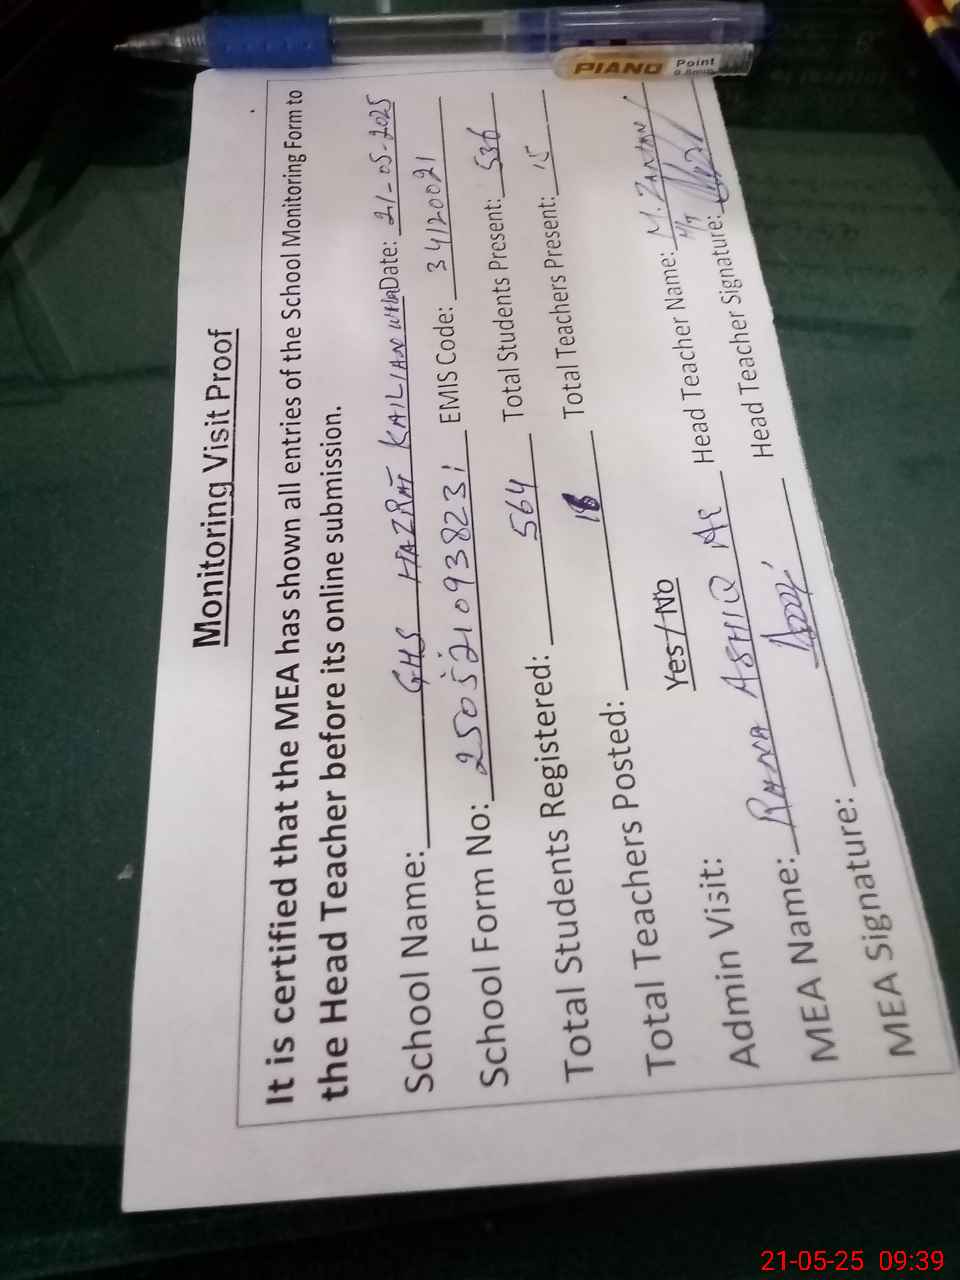 Monitoring Visit Proof
It is certified that the MEA has shown all entries of the School Monitoring Form to
the Head Teacher before its online submission.
School Name: GHS HAZRAT KAILIANWALA Date: 21-05-2025
School Form No: 250521093823! EMIS Code: 34120021
Total Students Registered: 564 Total Students Present: 536
Total Teachers Posted: 18 Total Teachers Present: 15
Admin Visit: Yes / No
MEA Name: RANA ASHIQ Ali Head Teacher Name: M. ZAMAN
MEA Signature: Head Teacher Signature:
PIANO Point
0.8mm
21-05-25 09:39